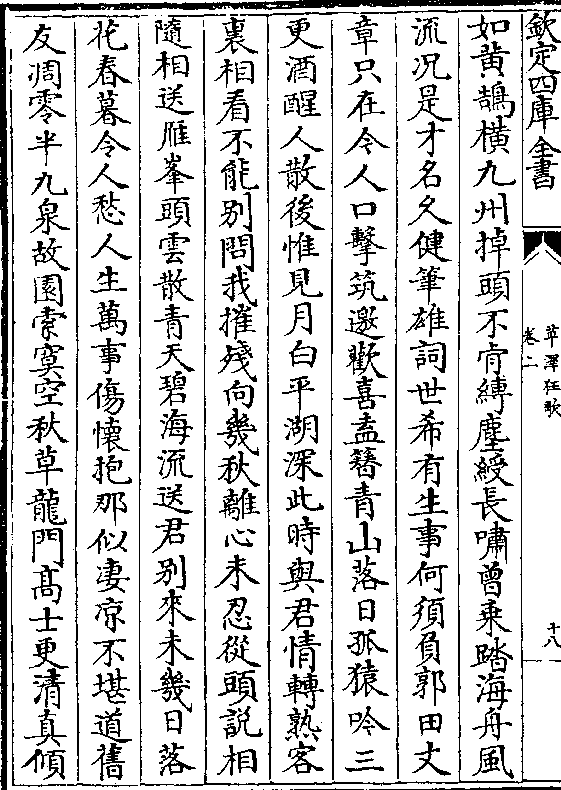 欽定四庫全書
草澤狂歌
卷二
十八
如黄鵠橫九州掉頭不肯縳塵綬長嘯曾乗踏海舟風
流况是才名久健筆雄詞世希有生事何須負郭田文
章只在令人口擊筑邀歡喜盍簪青山落日孤猿吟三
更酒醒人散後惟見月白平湖深此時與君情轉熟客
裏相看不能别問我摧殘向幾秋離心未忍從頭説相
隨相送雁峯頭雲散青天碧海流送君别來未幾日落
花春暮令人愁人生萬事傷懐抱那似凄凉不堪道舊
友凋零半九泉故園索寞空秋草龍門髙士更清真傾